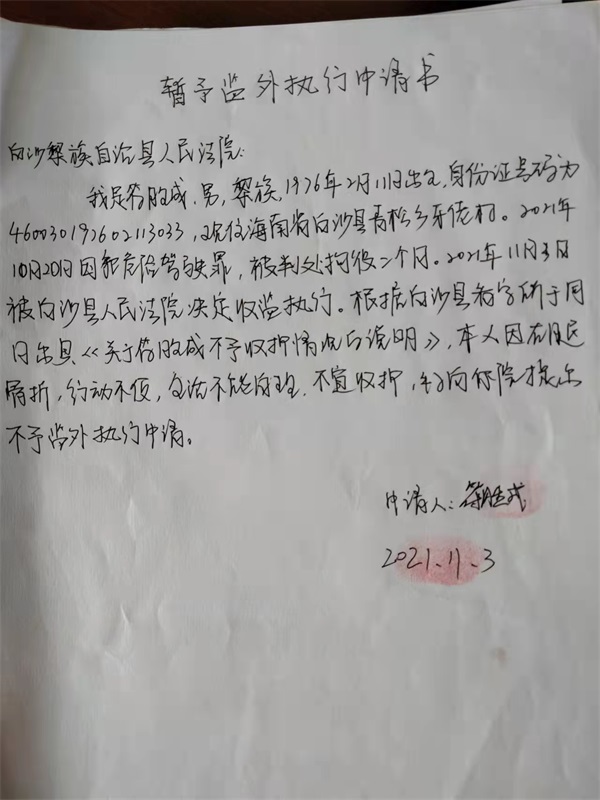 暂予监外执行申请书
白沙黎族自治县人民法院:
我是符胜成,男,黎族,1976年2月11日出生,身份证号码为
460030197602113033,现住海南省白沙县青松乡牙佬村。2021年
10月20日因犯危险驾驶罪,被判处拘役二个月。2021年11月3日
被白沙县人民法院决定收监执行。根据白沙县看守所于同
日出具《关于符胜成不予收押情况的说明》,本人因右
骨折,行动不便,生活不能自理,不宜收押,特向你院提出
不予监外执行申请。
申请人:符胜成
2021、11、3